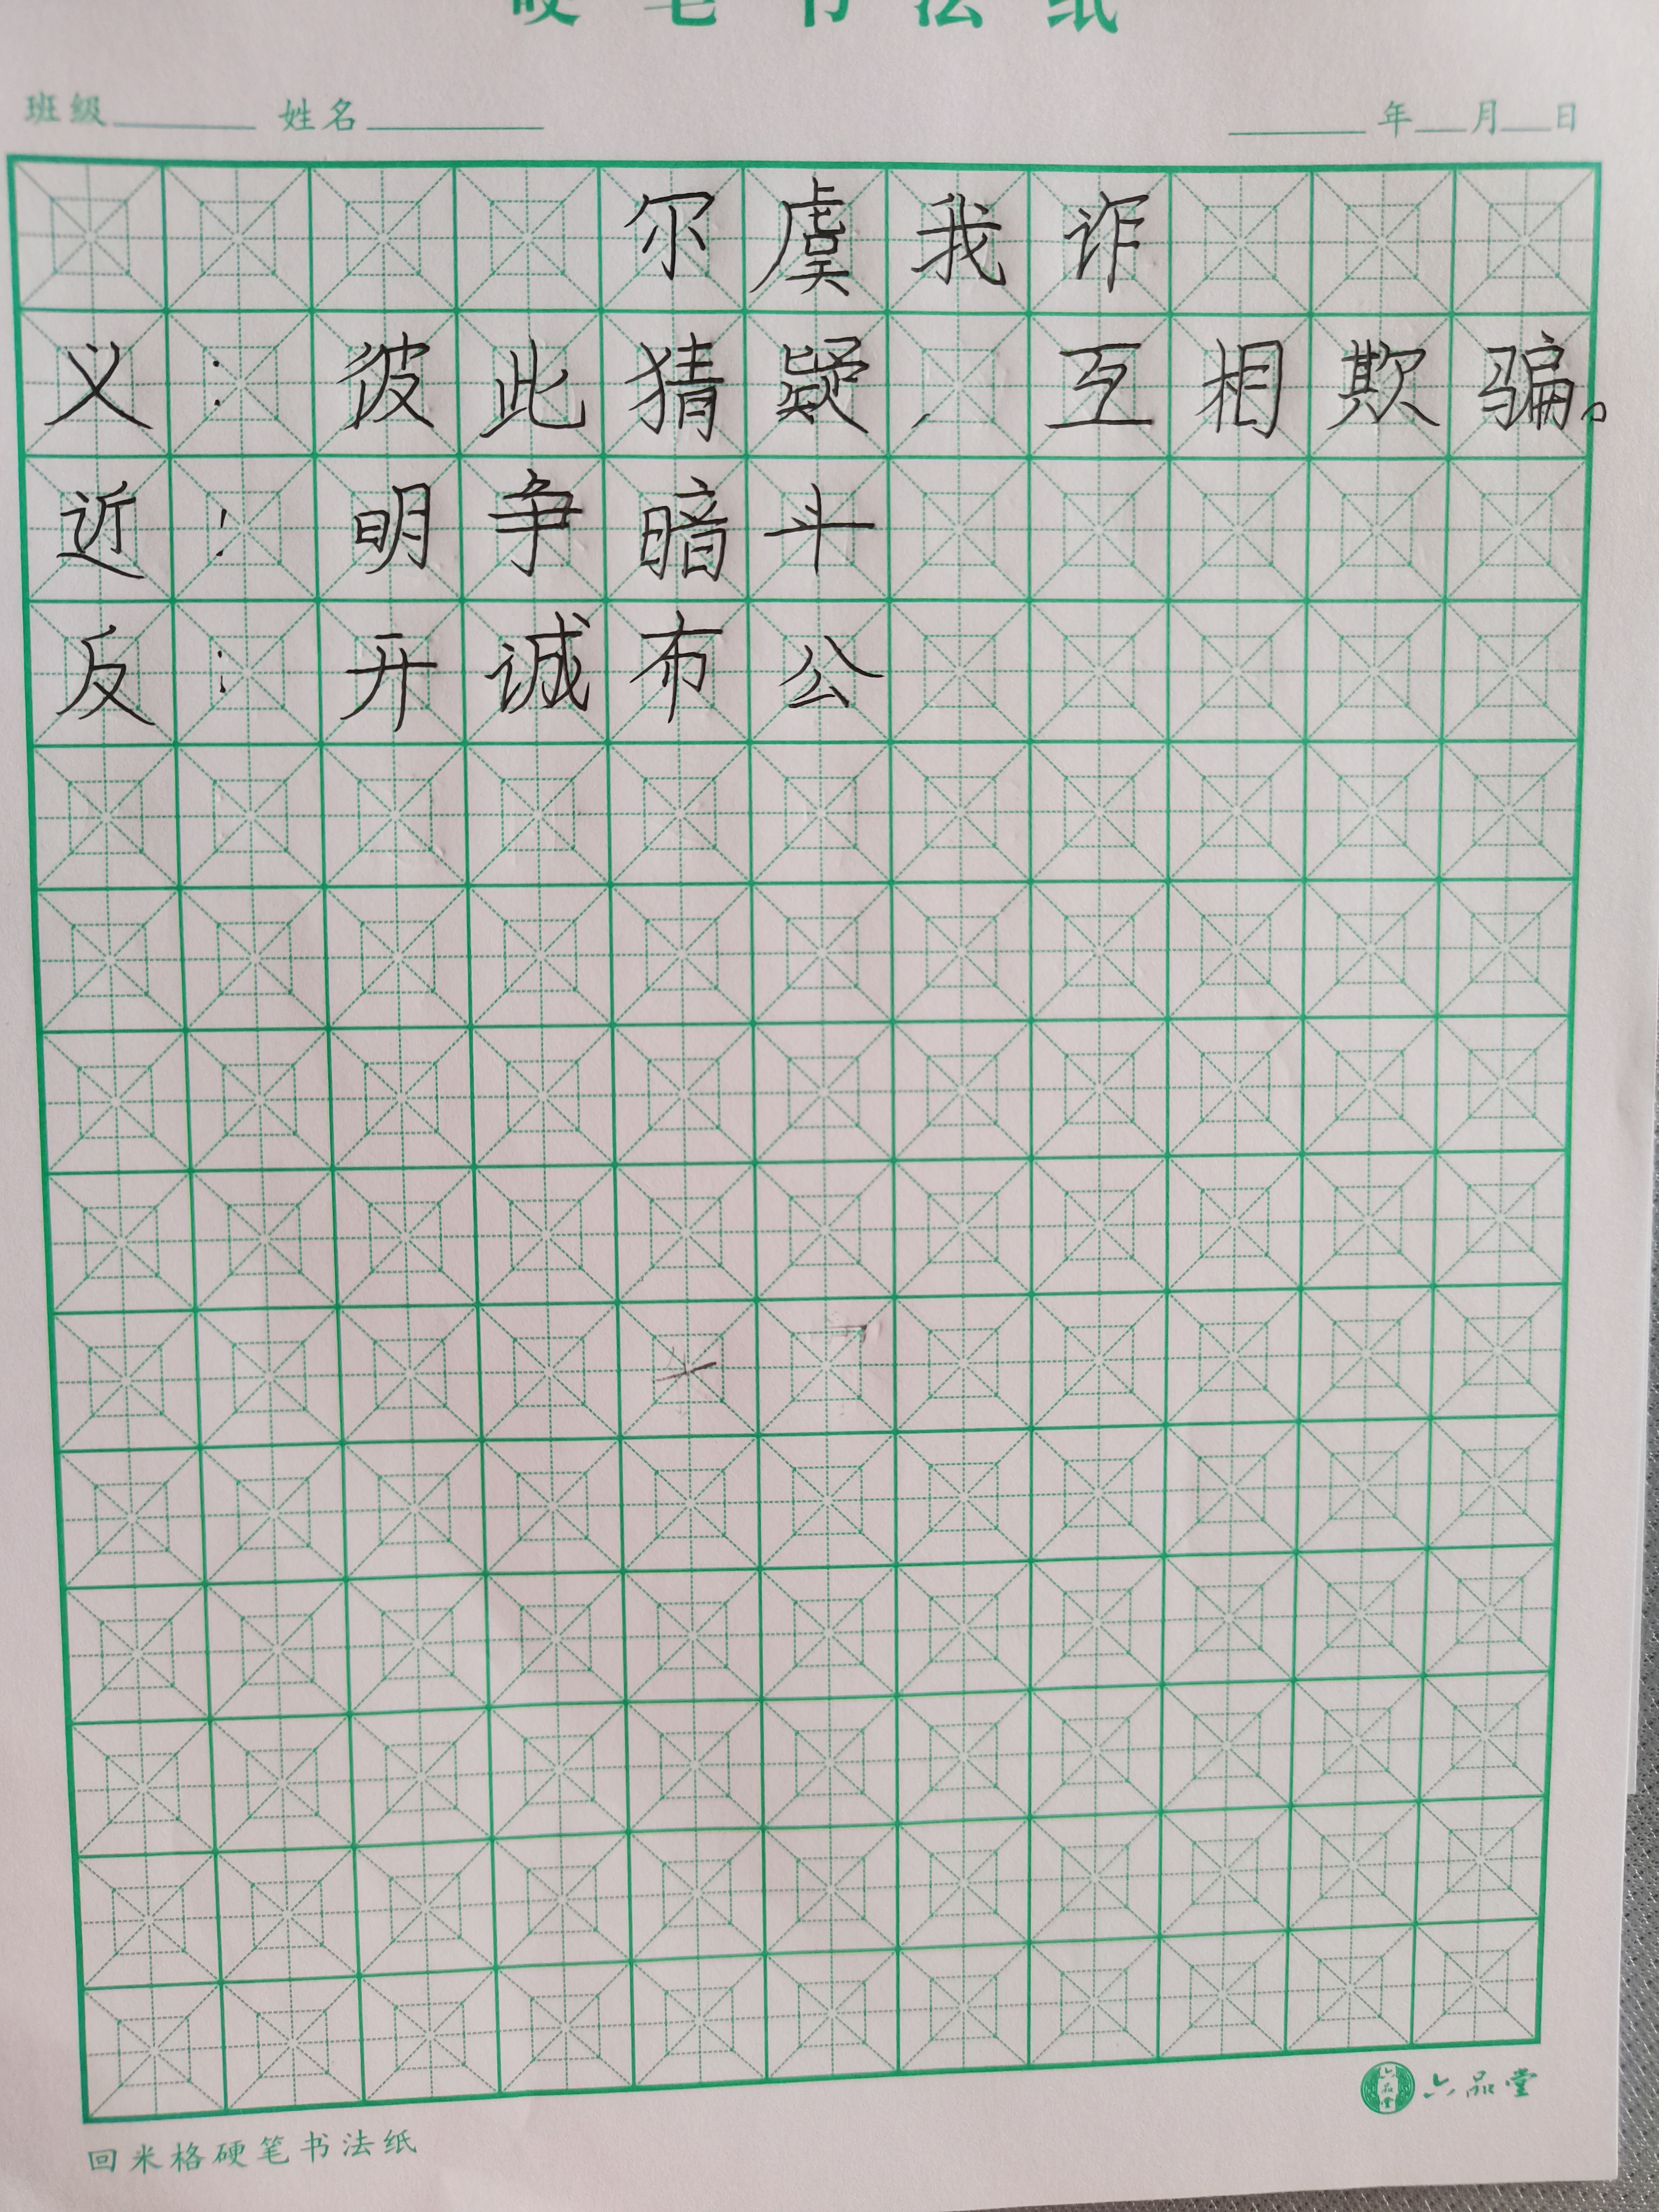 硬笔书法纸
班级 姓名 年 月 日
尔虞我诈
义：彼此猜疑，互相欺骗。
近：明争暗斗
反：开诚布公
六品堂 六品堂
回米格硬笔书法纸